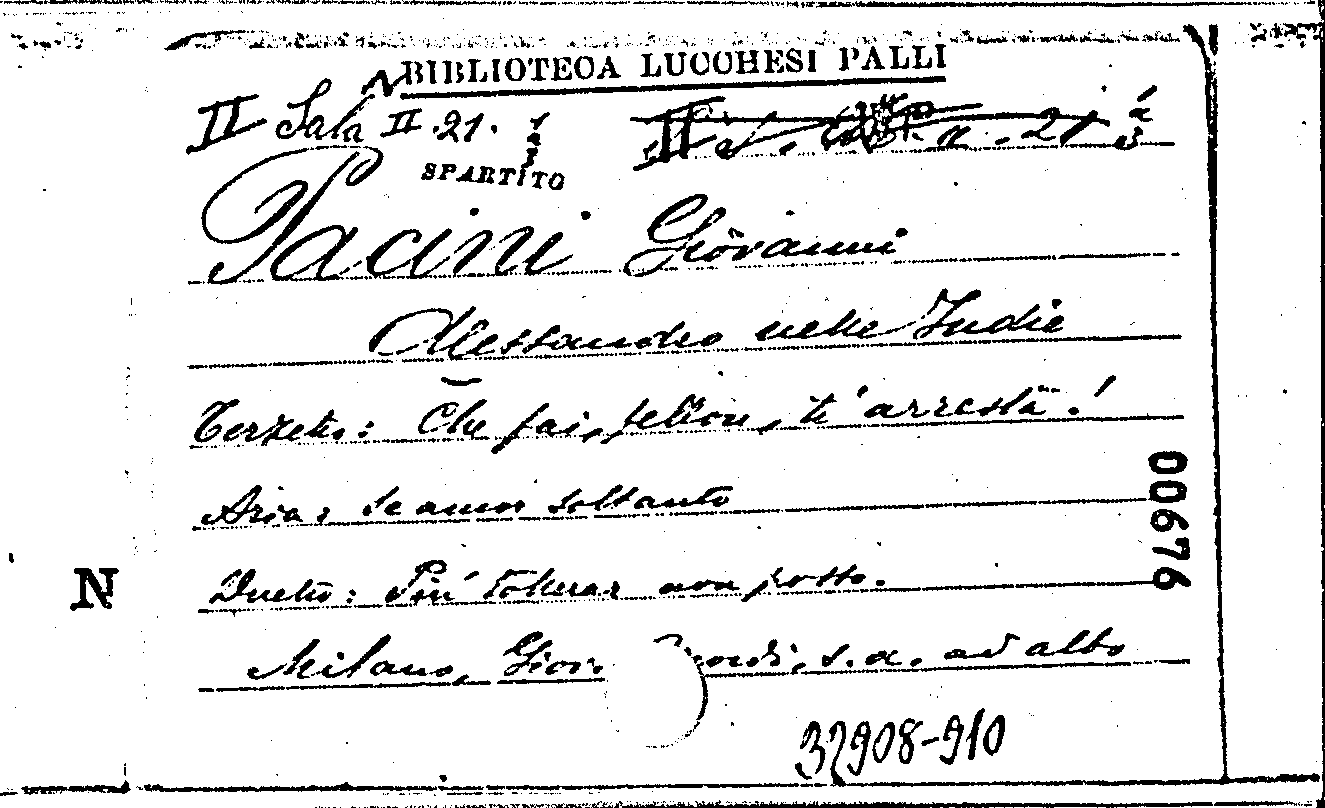 BIBLIOTECA LUCCHESI PALLI
II Sala II 21. 1 a 3
SPARTITO
Pacini Giovanni
Alessandro nelle Indie
Terzetto: Che fai, fellon, t'arresta!
Aria: Se amor soltanto
Duetto: Più tollerar non posso.
Milano, Giov. cordi, s. a. ad albo
32908-910
00676
N